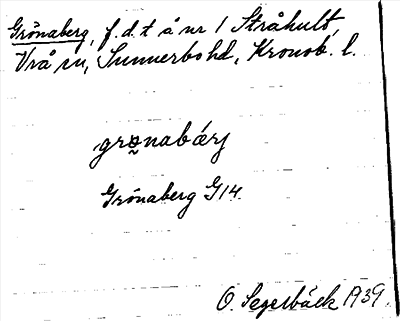 Grönaberg, f.d. t å nr 1 Stråhult,
Vrå sn, Sunnerbo hd, Kronob. l.
Grönaberg G14.
O. Segerbäck 1939.